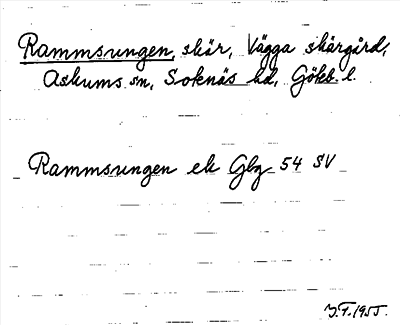 Rammsungen, skär, Vägga skärgård,
Askums sn, Sotenäs hd, Göteb. l.
Rammsungen ek Gbg 54 SV
J.F. 1955.